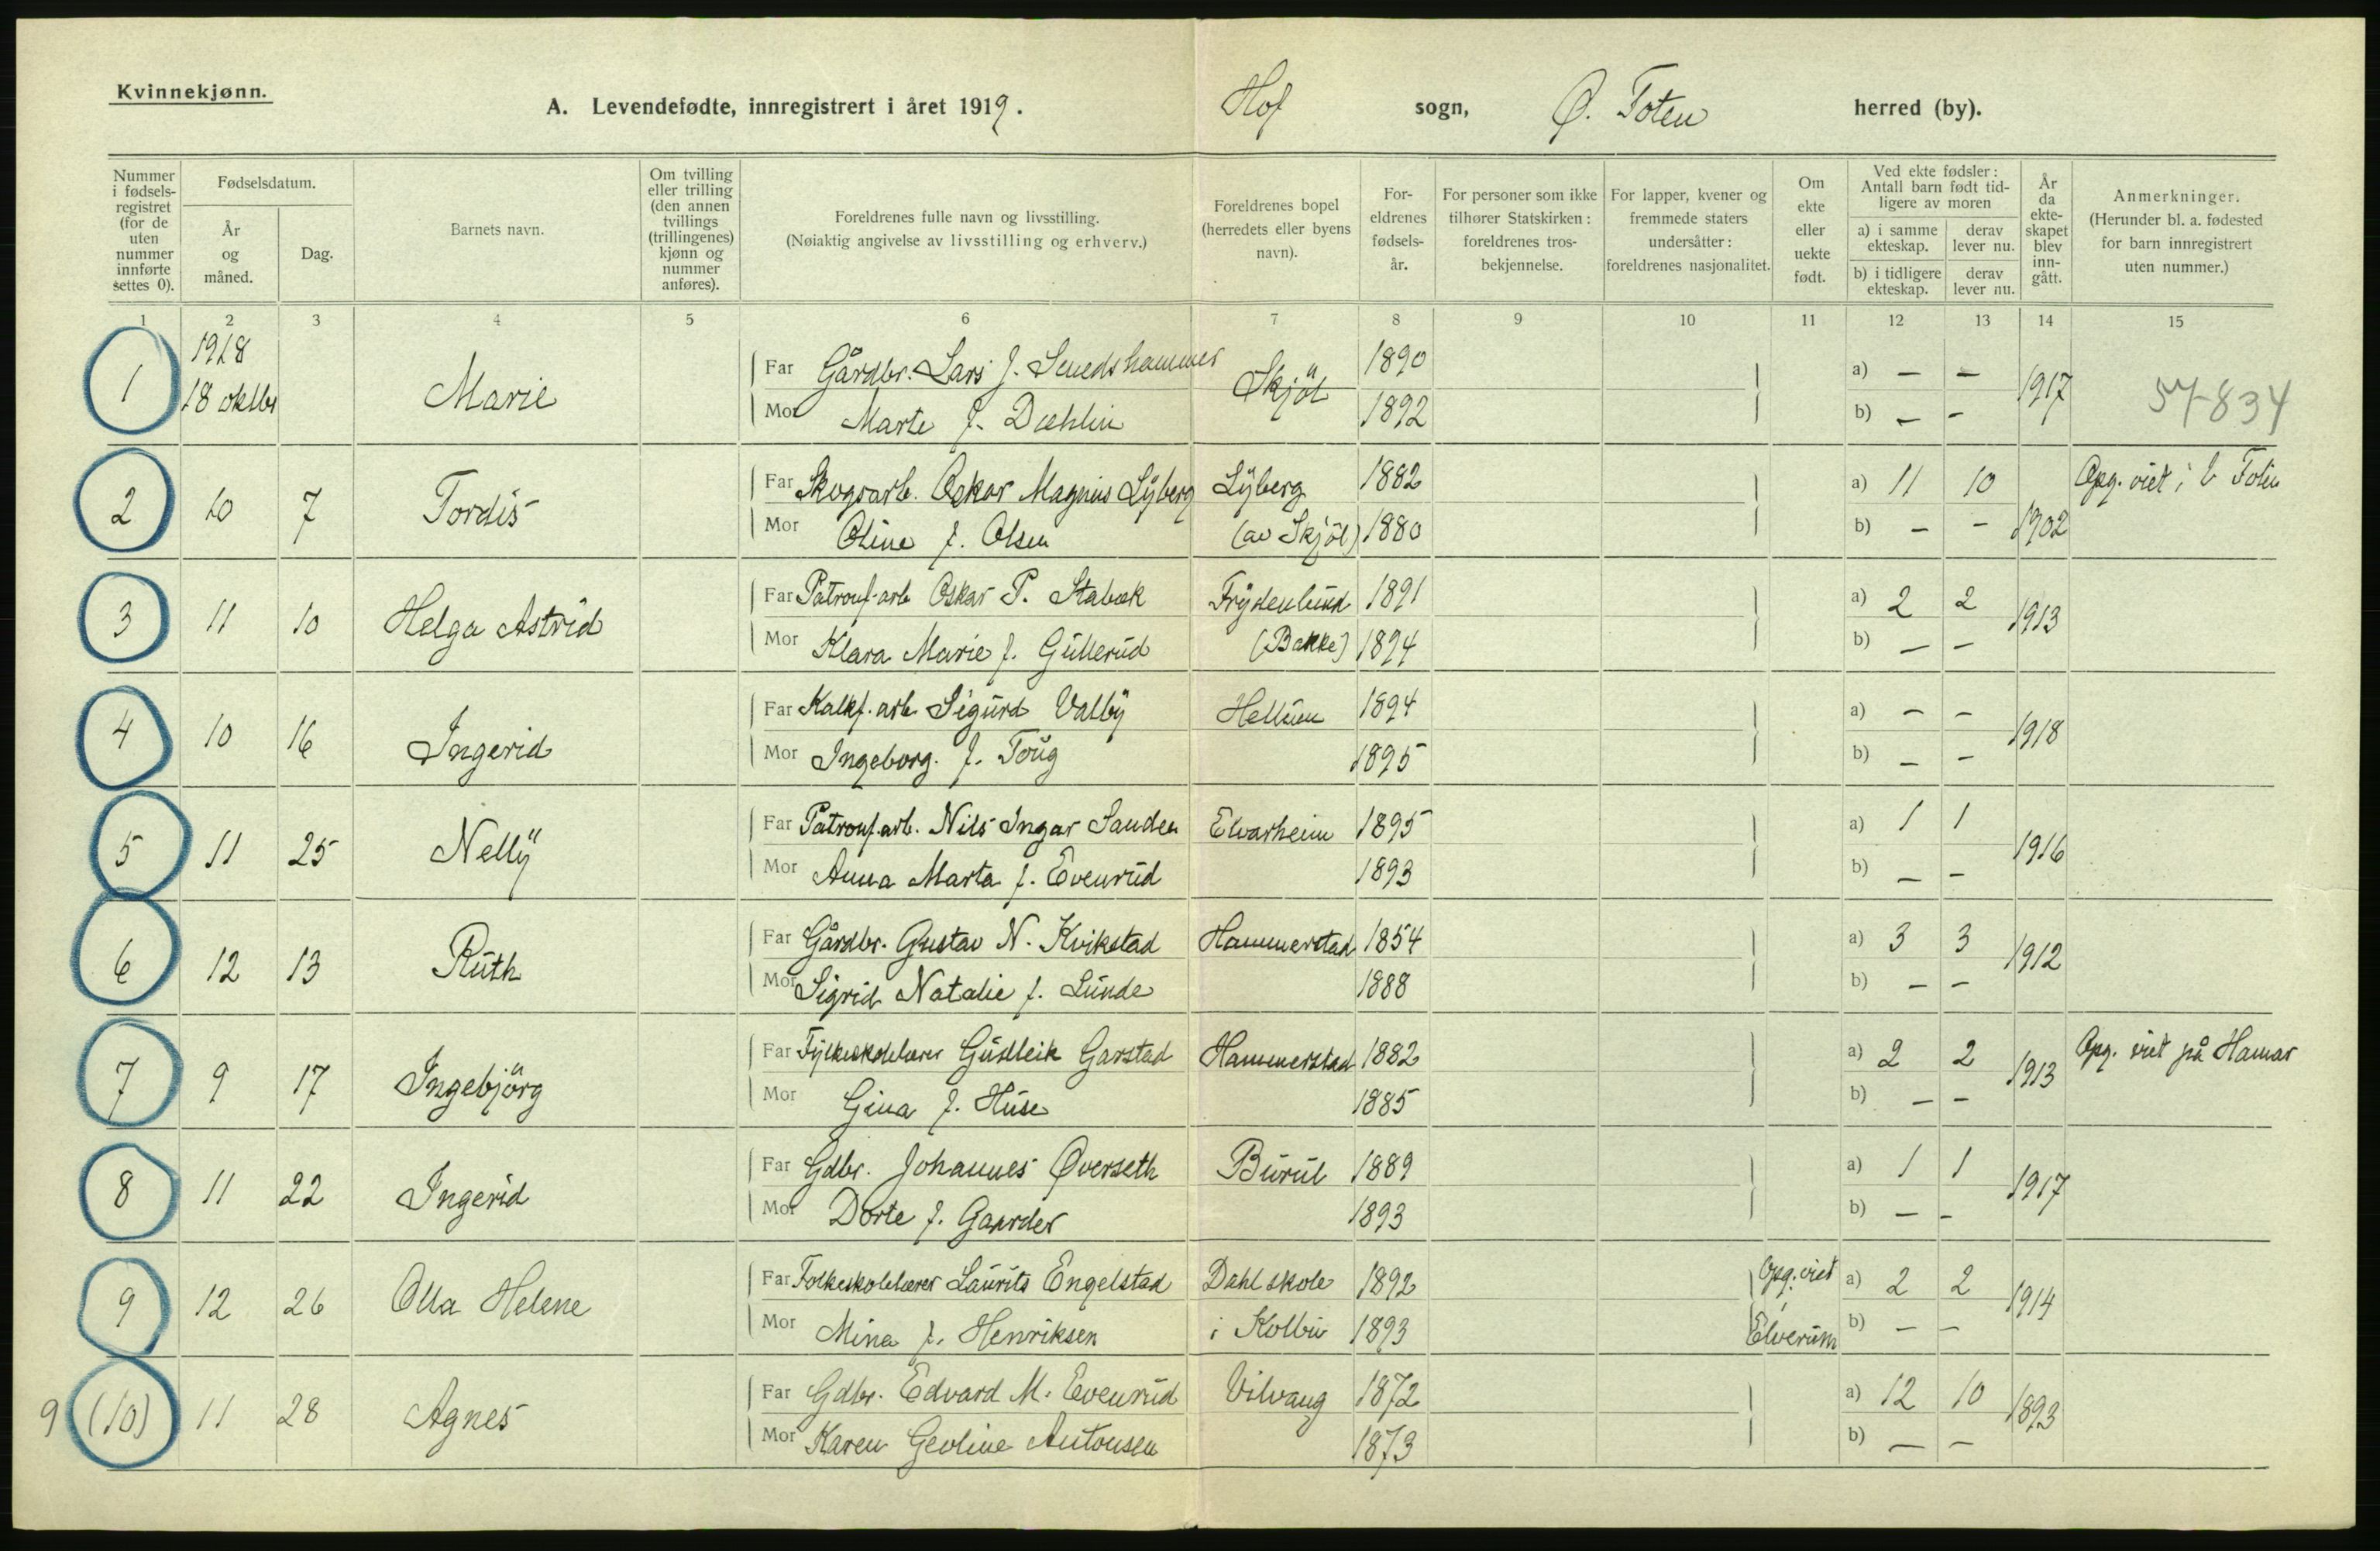 Kvinnekjønn.
A. Levendefødte, innregistrert i året 1919.
Hof sogn, Ø. Toten herred (by).
Nummer i fødselsregistret (for de uten nummer innførte settes 0).
Fødselsdatum.
År og måned.
Dag.
Barnets navn.
Om tvilling eller trilling (den annen tvillings (trillingenes) kjønn og nummer anføres).
Foreldrenes fulle navn og livsstilling.
(Nøiaktig angivelse av livsstilling og erhverv.)
Foreldrenes bopel (herredets eller byens navn).
Foreldrenes fødselsår.
For personer som ikke tilhører Statskirken: foreldrenes trosbekjennelse.
For lapper, kvener og fremmede staters undersåtter: foreldrenes nasjonalitet.
Om ekte eller uekte født.
Ved ekte fødsler: Antall barn født tidligere av moren
a) i samme ekteskap.
derav lever nu.
b) i tidligere ekteskap.
derav lever nu.
År da ekteskapet blev inngått.
Anmerkninger.
(Herunder bl. a. fødested for barn innregistrert uten nummer.)
1 2 3 4 5 6 7 8 9 10 11 12 13 14 15
1 1918 18 oktbr Marie Far Gårdbr. Lars J. Smedshammer Skjöl 1890 a) — — 1917 57-834
Mor Marte f. Dæhlin 1892 b) — —
2 10 7 Tordis Far Skogsarb. Oskar Magnus Lÿberg Lÿberg 1882 a) 11 10 1902 Opg. viet i V Toten
Mor Oline f. Olsen (av Skjöl) 1880 b) — —
3 11 10 Helga Astrid Far Patronf.arb Oskar P. Stabæk Frÿdenlund 1891 a) 2 2 1913
Mor Klara Marie f. Gullerud (Bakke) 1894 b) — —
4 10 16 Ingerid Far Kalkf.arb. Sigurd Valbÿ Hellum 1894 a) — — 1918
Mor Ingeborg f. Toug 1895 b) — —
5 11 25 Nellÿ Far Patronf.arb. Nils Ingar Sanden Elvarheim 1895 a) 1 1 1916
Mor Anna Marta f. Evenrud 1893 b) — —
6 12 13 Ruth Far Gårdbr. Gustav N. Kvikstad Hammerstad 1854 a) 3 3 1912
Mor Sigrid Natalie f. Lunde 1888 b) — —
7 9 17 Ingebjörg Far Fylkesskolelærer Gudleik Garstad Hammerstad 1882 a) 2 2 1913 Opg. viet på Hamar
Mor Gina f. Huse 1885 b) — —
8 11 22 Ingerid Far Gdbr. Johannes Øverseth Burul 1889 a) 1 1 1917
Mor Dorte f. Gaarder 1893 b) — —
9 12 26 Olla Helene Far Folkeskolelærer Laurits Engelstad Dahl skole 1892 Opg. viet i a) 2 2 1914
Mor Mina f. Henriksen i Kolbu 1893 Elverum b) — —
9 (10) 11 28 Agnes Far Gdbr. Edvard M. Evenrud Vilvang 1872 a) 12 10 1893
Mor Karen Geoline Antonsen 1873 b) — —